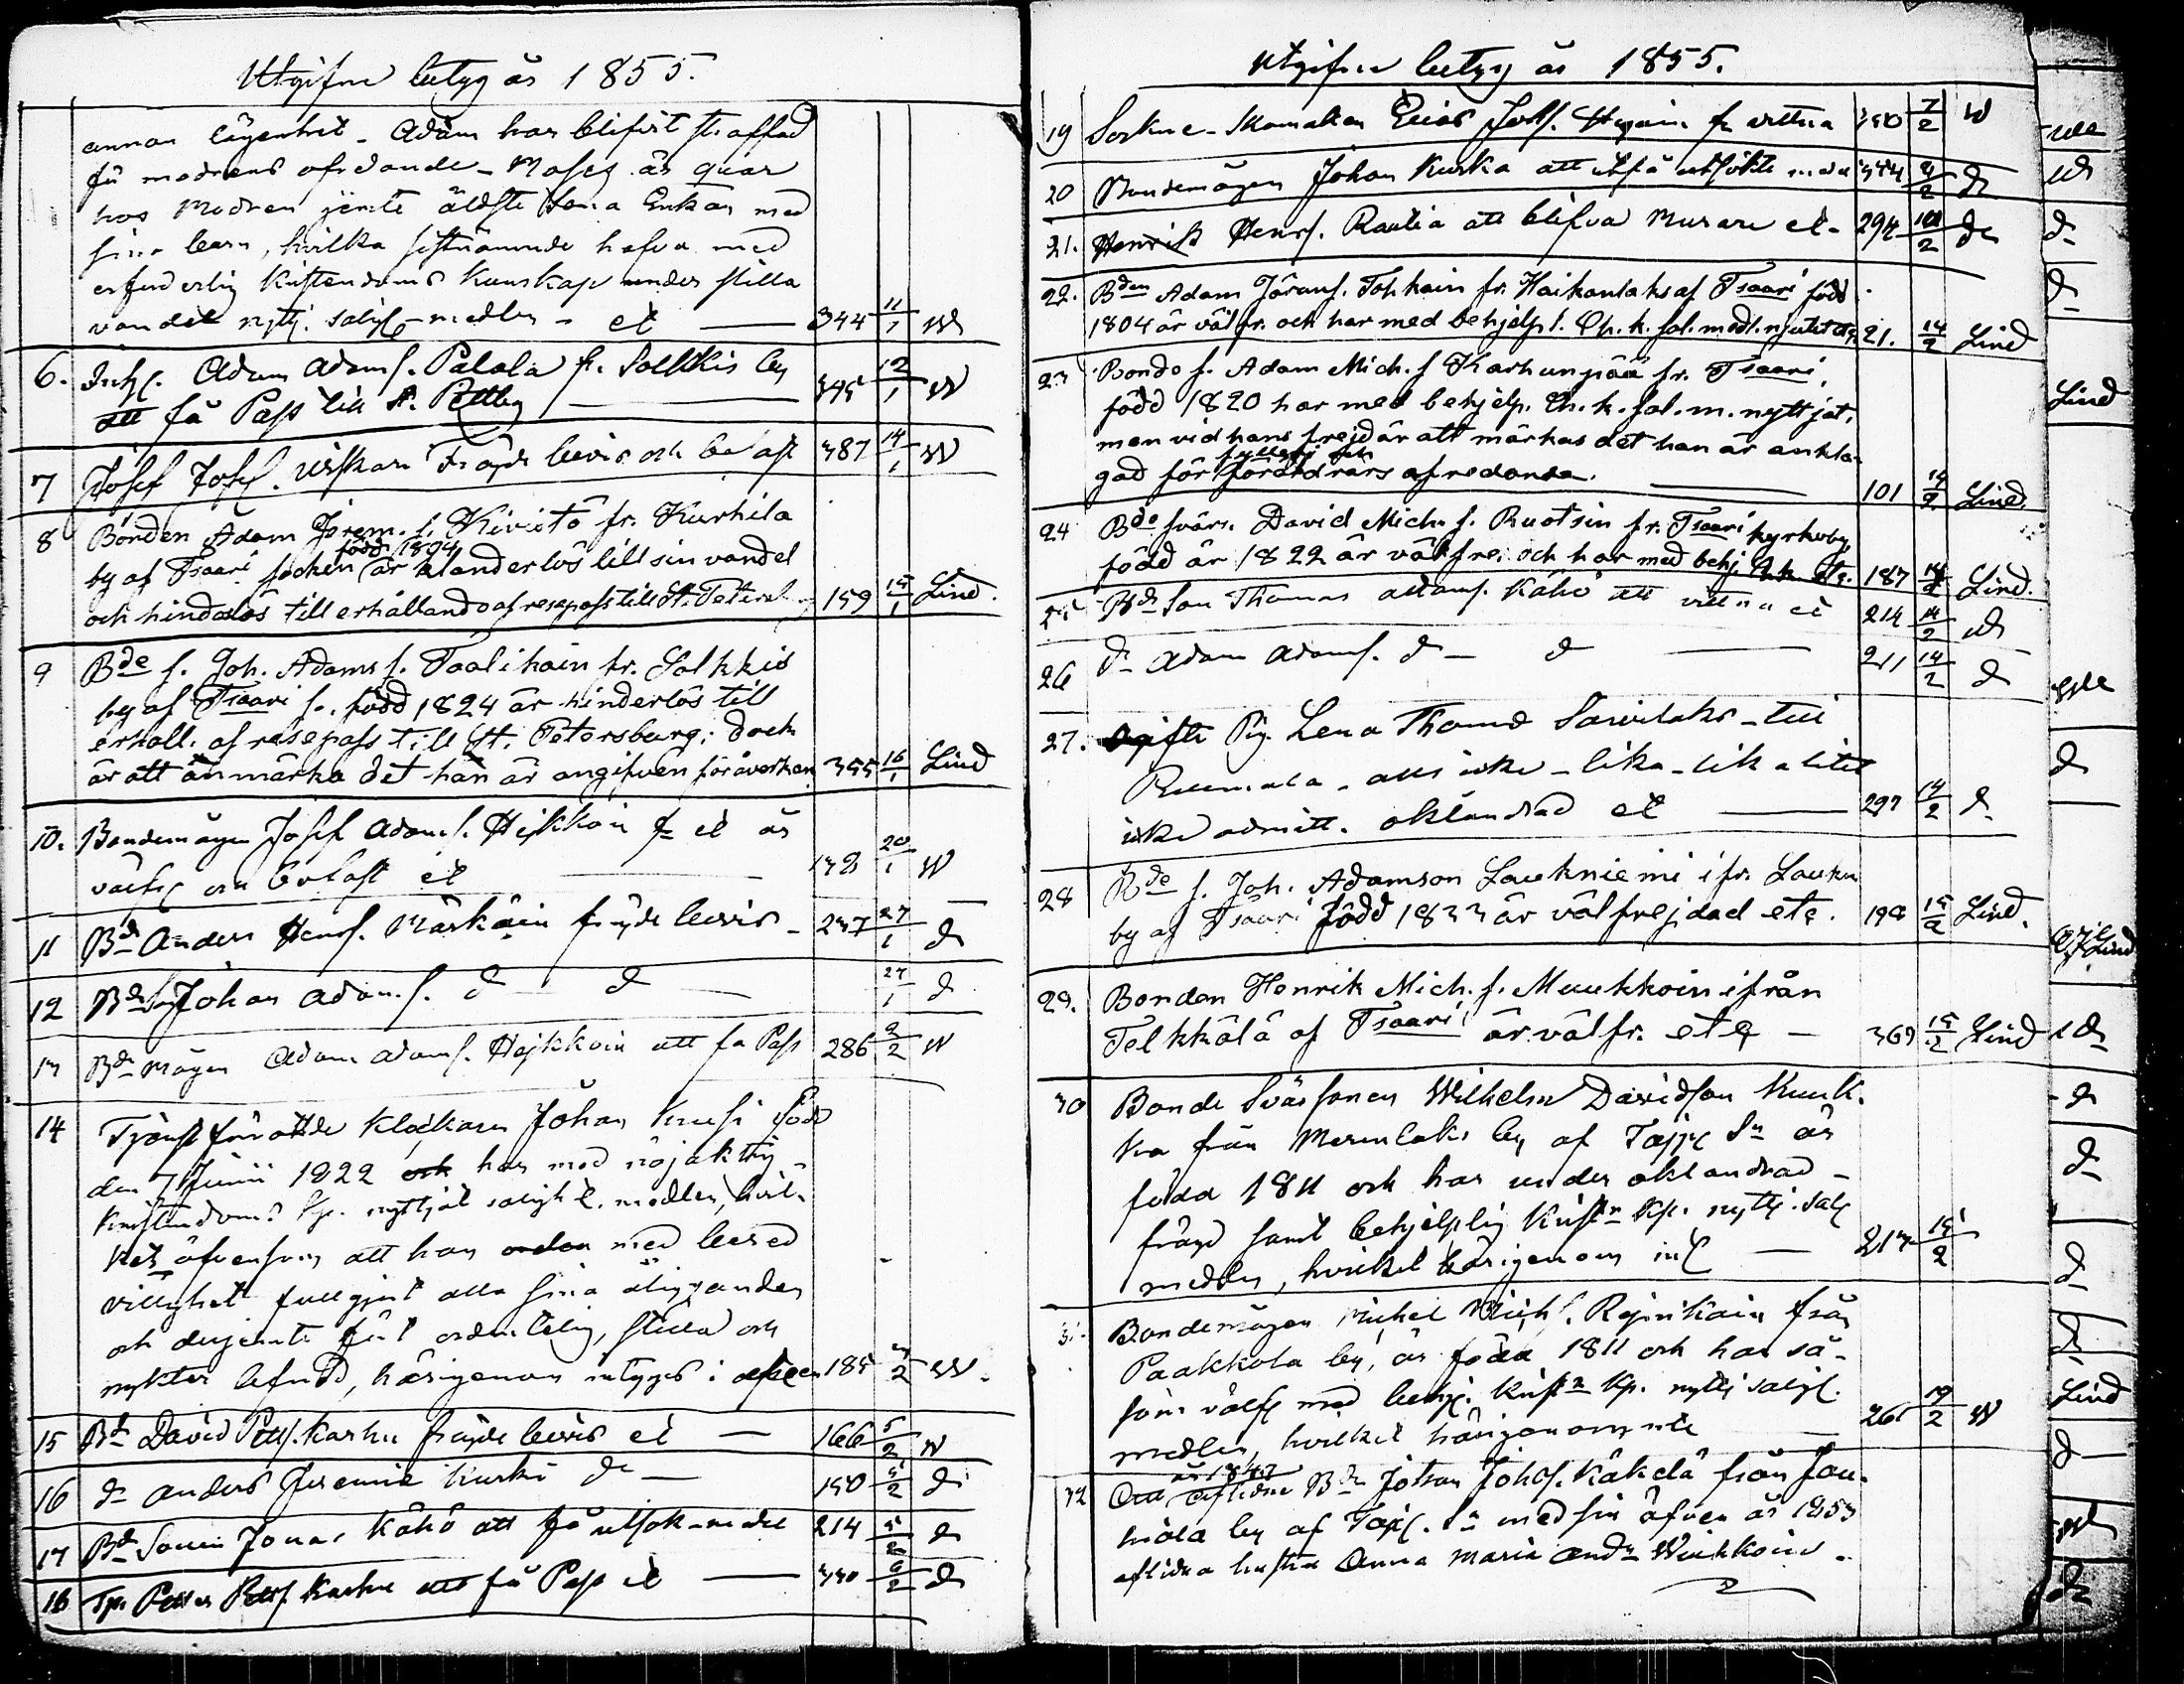 Utgifne betyg år 1855.
annan lägenhet - Adam har blifvit straffad
få modrens ofredande - Moses är qvar
hos Modren jemte äldste Sona Enkan med
sina barn, hvilka sistnämnde hafva med
erforderlig Kristendoms kunskap under stilla
vandel nyttj. saligh. medlen - et 344 11/1 W
6. Inh. Adam Adamf. Palola fr. Solkkis by
att få Pass till St. Pettbg 345 12/1 W
7 Josef Josef. frägde bevis och 387 14/1 W
8 Bonden Adam Jerem. f. Kivistö fr. Kurhila
född 1804
by af Tsaari socken är klanderlös till sin vandel
och hinderlös till erhållando af resepass till St. Petersb. 159 15/1 Lind.
9 Bde f. Joh. Adams f. Taalikain fr. Solkkis
by af Tsaari s. född 1824 är hinderlös till
erhåll. af resepass till St. Petersburg; doch
är att anmärka det han är angifven för åverkan 355 16/1 Lind
10. Bondemågen Josef Adamf. Hejkkoin fr et är
välfr och et 138 20/1 W
11 Bd Anders Henrf. frägde bevis - 237 27/1 d
12 Bd Son Johan Adam. f. d d 27/1 d
13 Bd mågen Adam Adamf. Hejkkoin att få Pass 286 2/2 W
14 Tjenstförrättde Klockaren Johan Kruss född
den 7 Junii 1822 och har med nöjaktig
Kristendoms Kp. nyttjat saligh t. medlen, hvil-
ket äfvensom att han med bered
villighet fullgjort alla sina åligganden
och derjemte fört ordentelig, stilla och
nykter lefnad, härigenom intygas i 185 2 W.
15 Bd David Pettf. Karhu frägde bevis et - 166 5/2 W
16 d Anders Jeremie Kurki d - 150 5/2 d
17 Bd Sonen Jonas Käkö att få utsok-medel 214 5/2 d
18 Tp. Petter Pettf. Karhu att få Pass et 330 6/2 d
Utgifne betyg år 1855.
19 Sockne-Skomakare Elias fr vittna 150 7/2 W
20 Bondemågen Johan Kurka att utfå utsökte medel 344 9/2 d
21. Henrik Henrf. Rautia att blifva Murare et - 294 10/2 d
22. Bden Adam Göranf. Tohkain fr. Haikanlaks af Tsaari född
1804 är väl fr. och har med behjelpl. Ch. k. sal. medl. njutit etc. 21. 14/2 Lind
23 Bonde f. Adam Mich. f Karhunpää fr. Tsaari,
född 1820 har med behjelp. Ch. k. sal. m. nyttjat,
men vid hans frejd är att märkas det han är ankla-
fylleri och
gad för föräldrars ofredande. 101 14/2 Lind.
24 Bde svärs. David Mich. f. Ruotsin fr. Tsaari kyrkoby
född år 1822 är väl fre. och har med behj. Ch. k. etc. 187 14/2 Lind.
25 Bd Son Thomas Adamf. Käkö att vittna et 214 14/2 W
26 d Adam Adamf. d - d 211 14/2 d
27. Ogifte Pig. Lena Thomd Sarvilaks - till
Rummala - alls icke - lika - lik alitet
icke admitt. oklandrad et 297 14/2 d
28 Bde f. Joh. Adamson Laukniemi ifr. Laukn
by af Tsaari född 1833 är välfrejdad etc. 198 15/2 Lind.
29. Bonden Henrik Mich. f. Muukkoin ifrån
Telkkälä af Tsaari är välfr. etc - 369 15/2 Lind
30 Bonde Svärsonen Wilhelm Davidson Kuuk-
ka från Mermlaks by af Tajp. Sn är
född 1811 och har under oklandrad
frägd samt behjelplig Kristn Kp. nyttj. salg
medlen, hvilket härigenom int 213 15/2
31. Bondemågen Michel Mich f. Rejnikain från
Paakkola by, är född 1811 och har så-
som välfr med behj. Kristn Kp. nyttj salgh.
medlen, hvilket härigenom inte 261 19/2 W
32 år 1847
Att aflidne Bd Johan Johsf. Käkelä från Jou-
hiola by af Tajp. Sn med sin äfven år 1853
aflidna hustru Anna Maria Andr Wuikkoin -
Lind
d
d
Lind
d
d
Lind
d
d
d
d
d
Lind
d